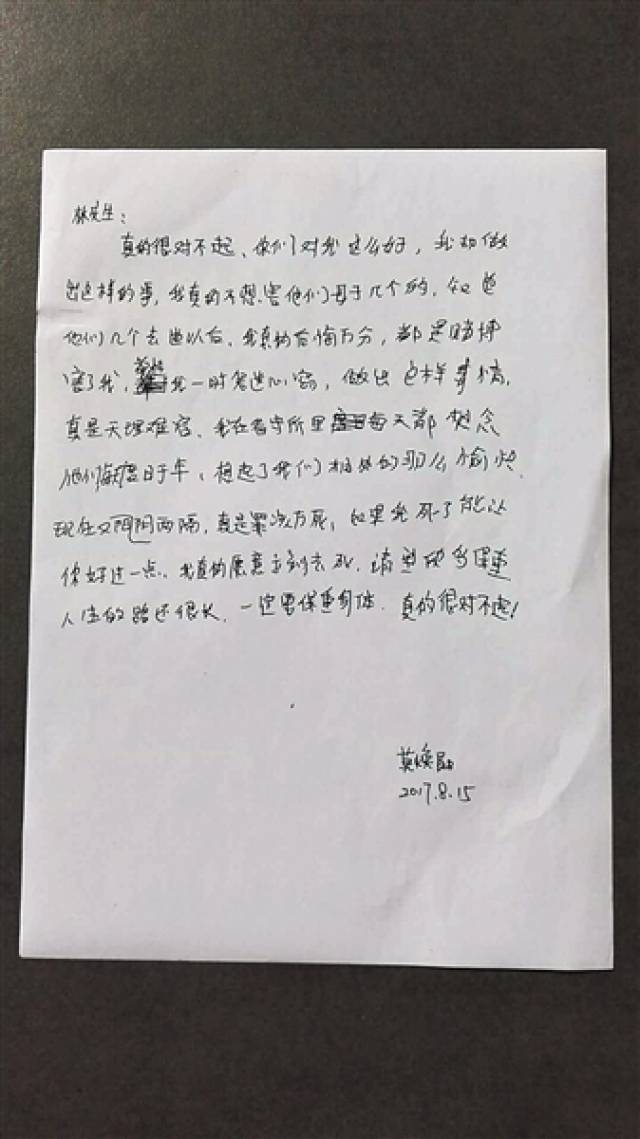 林先生:
真的很对不起、你们对我这么好,我却做
出这样的事,我真的不想害他们母子几个的,知道
他们几个去世以后,我真的后悔万分,都是赌博
害了我,我一时鬼迷心窍,做出这样事情,
真是天理难容、我在看守所里每天都想念
他们度日于年,想起了我们相处的那么愉快
现在又阴阳两隔,真是罪该万死,如果我死了能让
你好过一点、我真的愿意去死,请
人生的路还很长,一定要保重身体、真的很对不起!
莫焕晶
2017.8.15